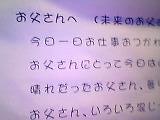 お父さんへ （未来のお父
今日一日お仕事おつかれ
お父さんにとって今日は
晴れだったお父さん、
お父さん、いろいろ